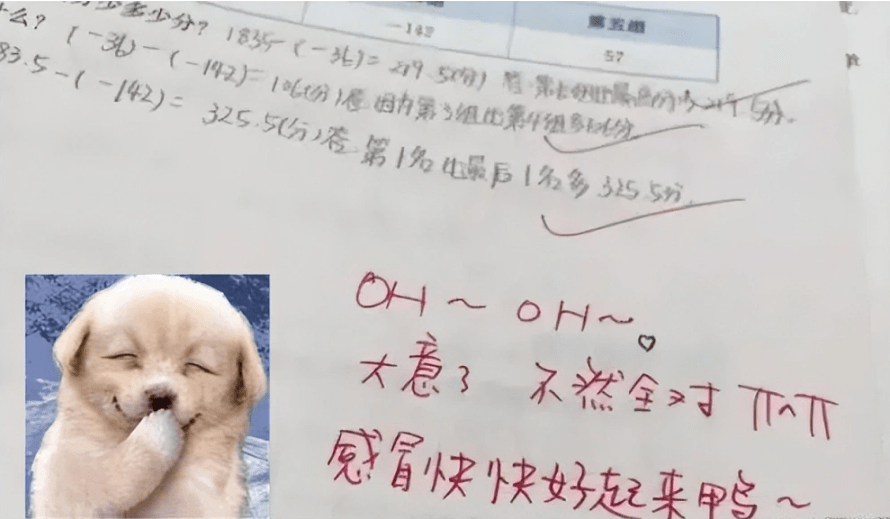 第五组
-142
57
么? 少多少分? 183.5-(-36)= 219.5(分) 答: 5分.
(-36)-(-142)=106(分)答: 因为第3组比第4组多106分
83.5-(-142)= 325.5(分)答: 第1名比最后1名多325.5分.
OH~OH~♡
大意了 不然全对 π^π
感冒快快好起来鸭~